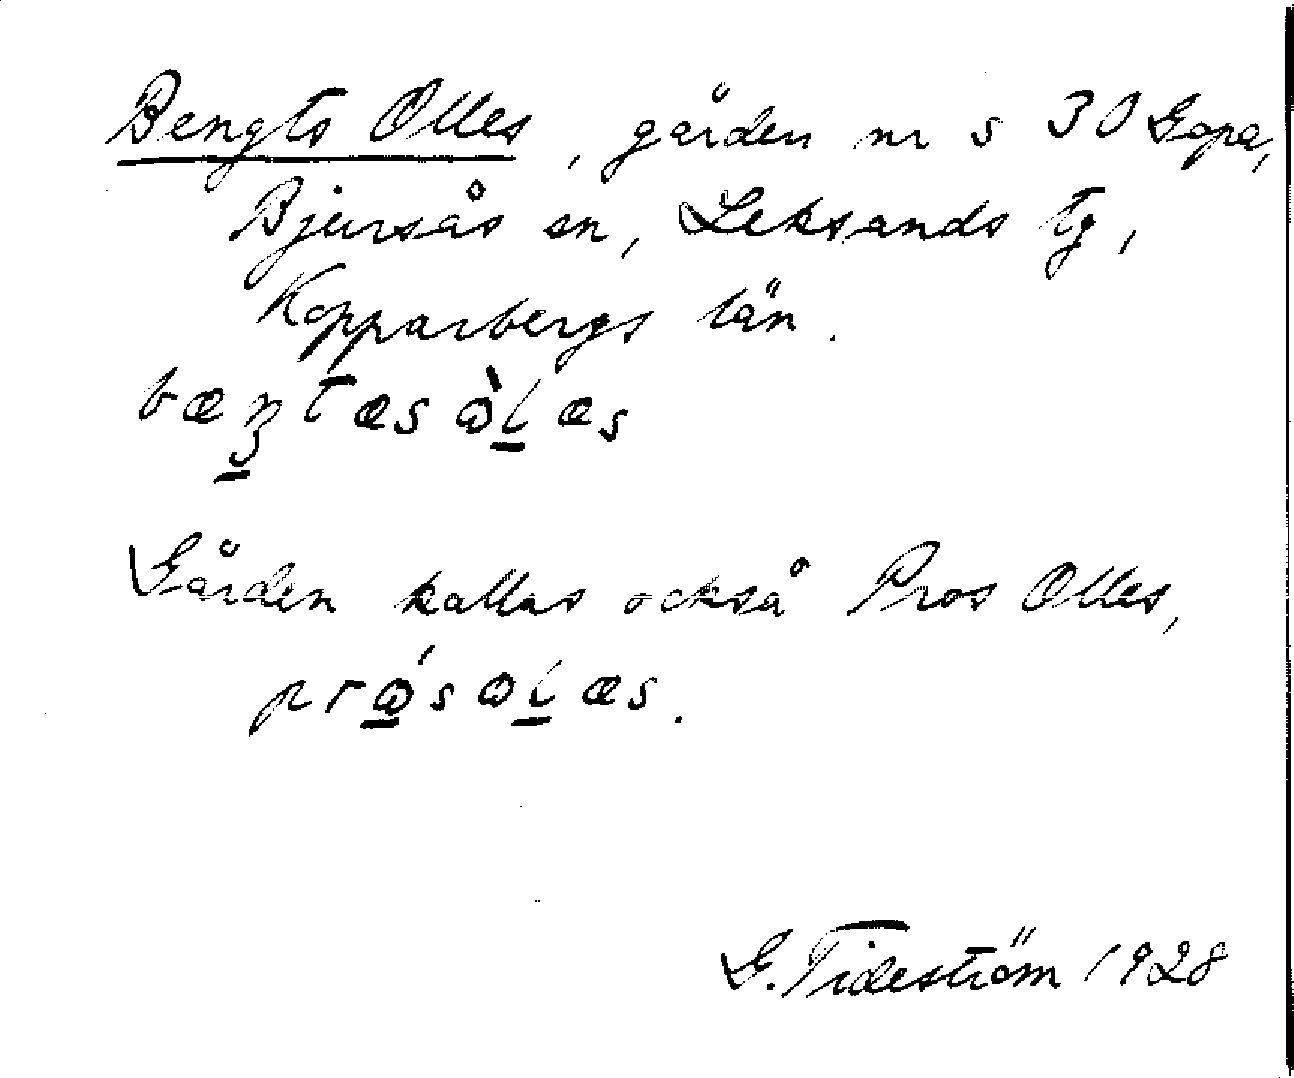 Bengts Olles, gården nr 5 30 Gopa,
Bjursås sn, Leksands tg,
Kopparbergs län.
Gården kallas också Pros Olles,
G. Tideström 1928